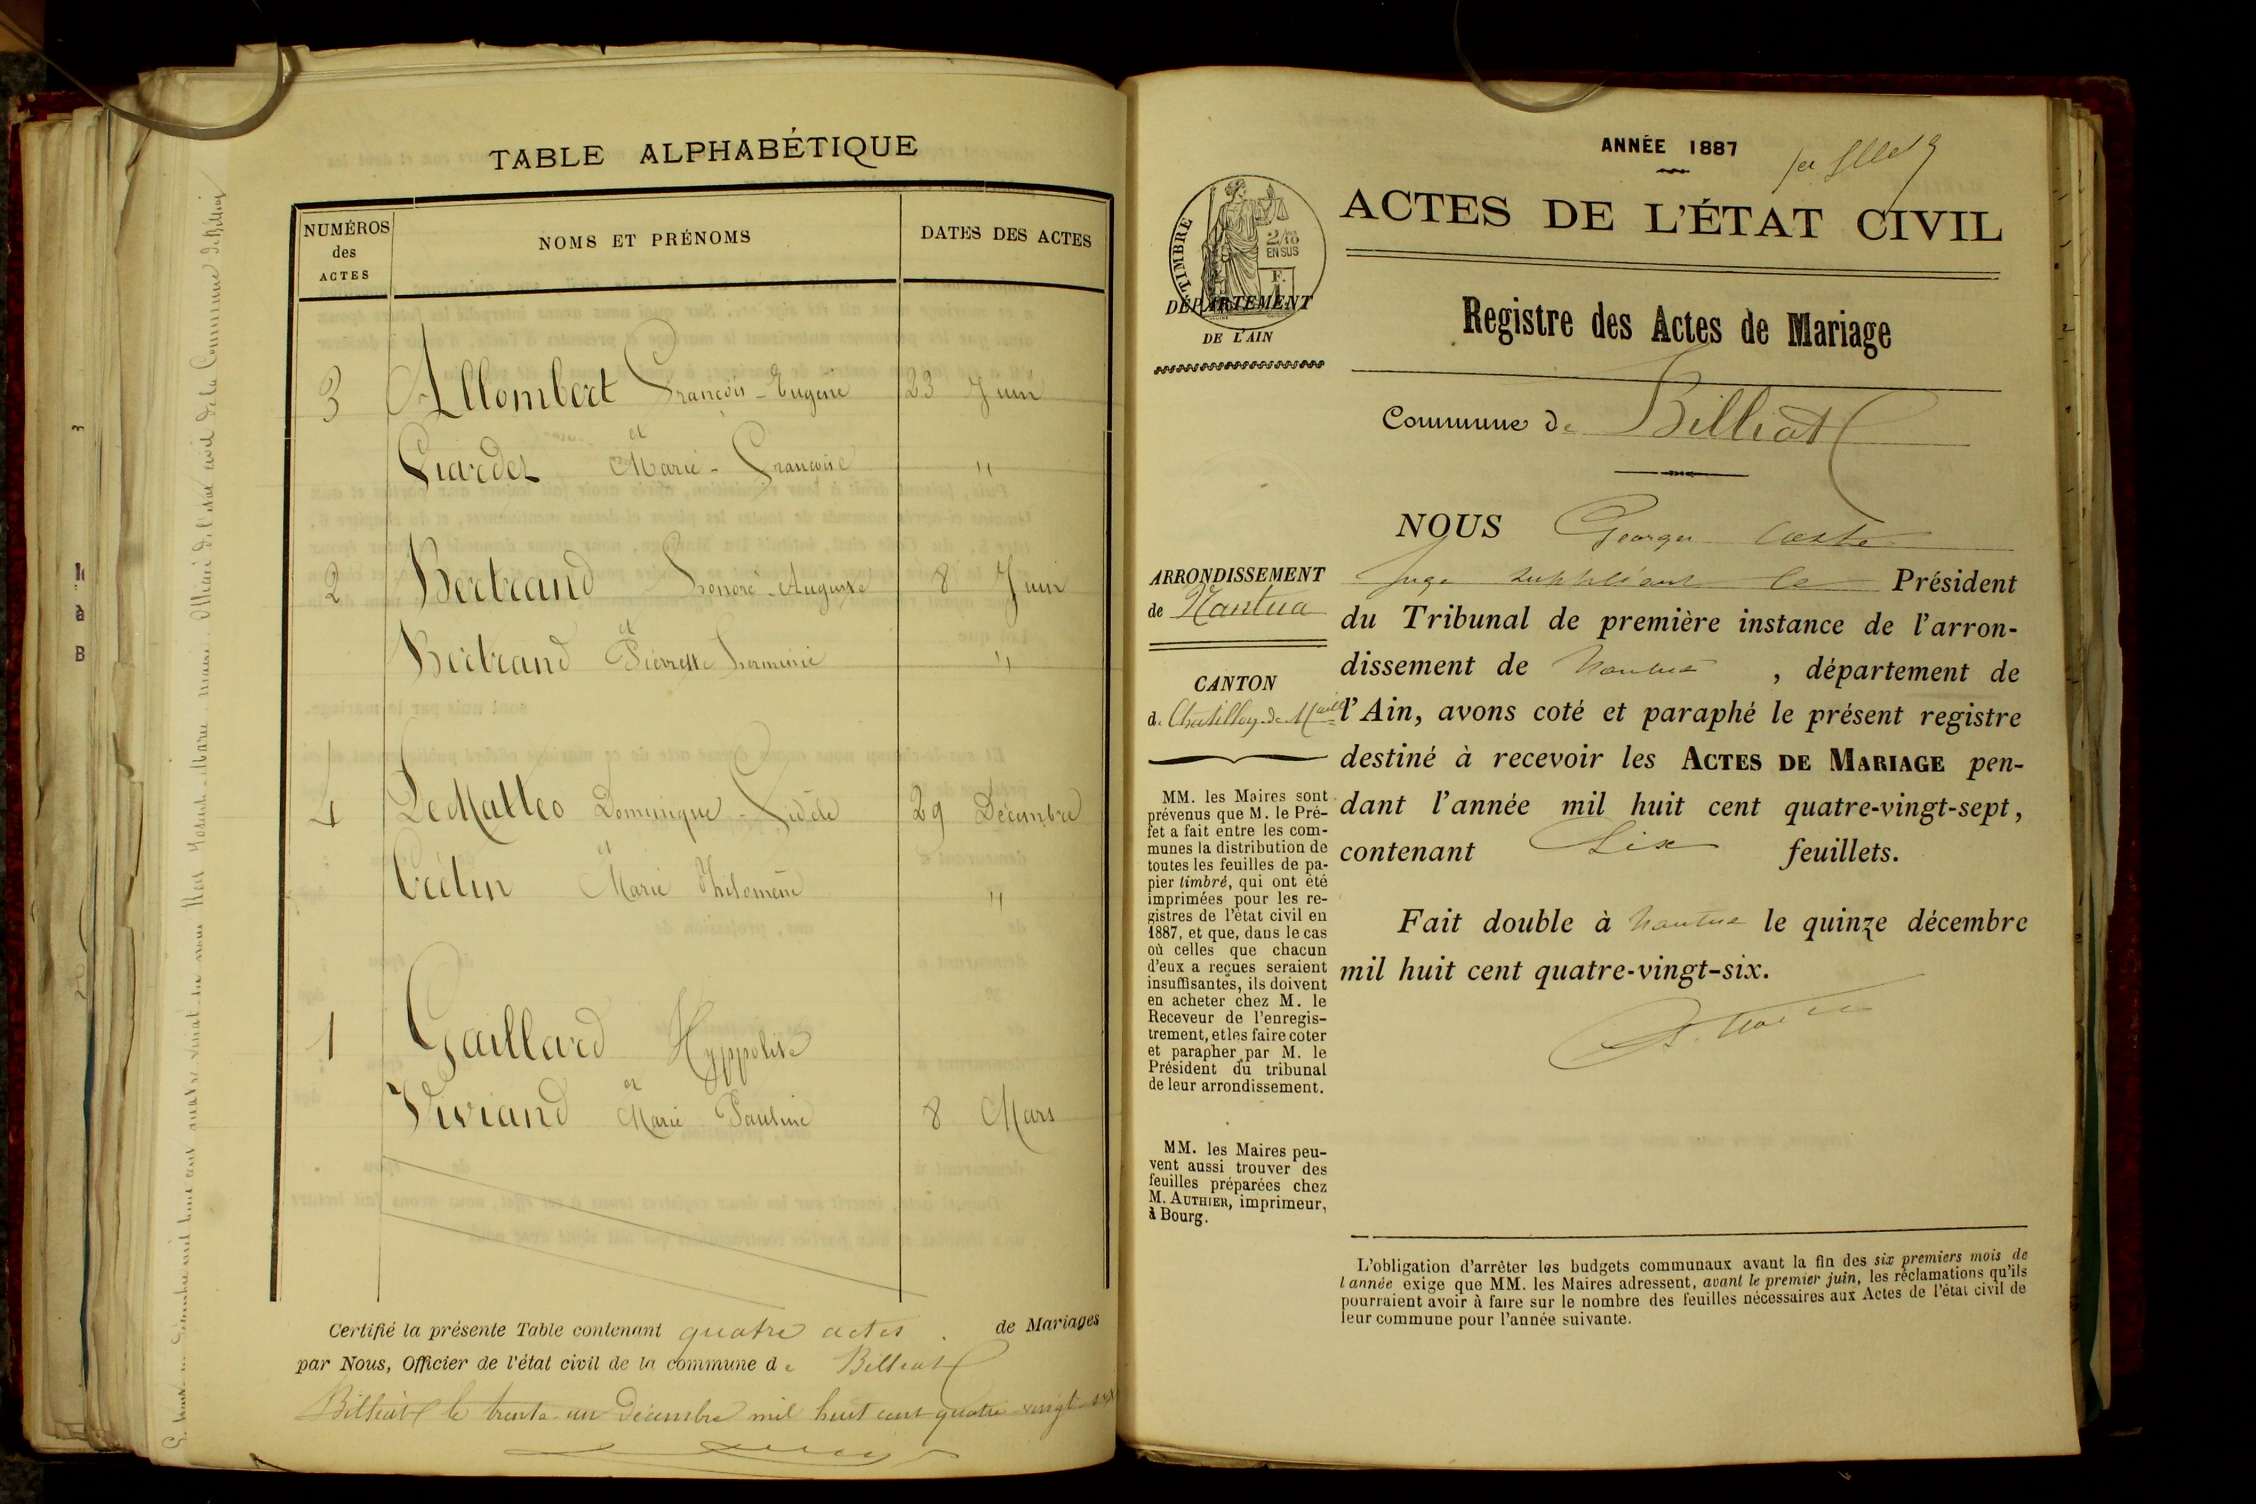 TABLE ALPHABÉTIQUE
NUMÉROS des ACTES
NOMS ET PRÉNOMS
DATES DES ACTES
3 Allombert François-Eugène 23 Juin
et
Marie-Françoise "
2 Bertrand Honoré-Auguste 8 Juin
et
Bertrand Pierrette Herminie "
4 DeMatteo Dominique-Fidèle 29 Décembre
et
Crétin Marie Philomène "
1 Gaillard Hyppolite
et
Viviand Marie Pauline 8 Mars
Certifié la présente Table contenant quatre actes de Mariages
par Nous, Officier de l'état civil de la commune de Billiat
Billiat le trente-un Décembre mil huit cent quatre-vingt-six
ANNÉE 1887
ACTES DE L'ÉTAT CIVIL
TIMBRE
2/10
EN SUS
DÉPARTEMENT
DE L'AIN
Registre des Actes de Mariage
Commune de Billiat
ARRONDISSEMENT
de Nantua
CANTON
de Chatillon-de-Maille
MM. les Maires sont
prévenus que M. le Pré-
fet a fait entre les com-
munes la distribution de
toutes les feuilles de pa-
pier timbré, qui ont été
imprimées pour les re-
gistres de l'état civil en
1887, et que, dans le cas
où celles que chacun
d'eux a reçues seraient
insuffisantes, ils doivent
en acheter chez M. le
Receveur de l'enregis-
trement, et les faire coter
et parapher par M. le
Président du tribunal
de leur arrondissement.
MM. les Maires peu-
vent aussi trouver des
feuilles préparées chez
M. AUTHIER, imprimeur,
à Bourg.
NOUS Georges
Juge suppléant le Président
du Tribunal de première instance de l'arron-
dissement de Nantua, département de
l'Ain, avons coté et paraphé le présent registre
destiné à recevoir les ACTES DE MARIAGE pen-
dant l'année mil huit cent quatre-vingt-sept,
contenant Six feuillets.
Fait double à Nantua le quinze décembre
mil huit cent quatre-vingt-six.
L'obligation d'arrêter les budgets communaux avant la fin des six premiers mois de
l'année exige que MM. les Maires adressent, avant le premier juin, les réclamations qu'ils
pourraient avoir à faire sur le nombre des feuilles nécessaires aux Actes de l'état civil de
leur commune pour l'année suivante.